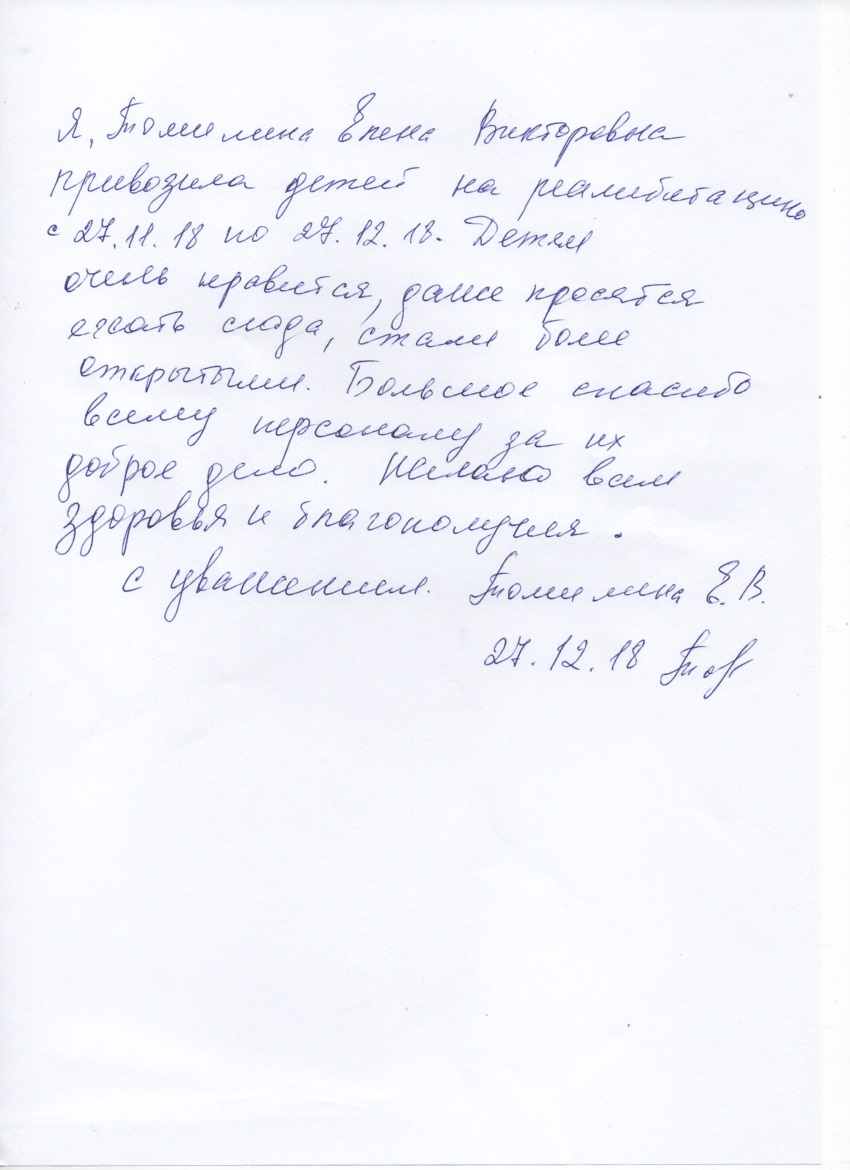 Я, Томилина Елена Викторовна
привозила детей на реалибитацию
с 27.11.18 по 27.12.18. Детям
очень нравится, даже просятся
ехать сюда, стали более
открытыми. Большое спасибо
всему персоналу за их
доброе дело. Желаю всем
здоровья и благополучия.
С уважением. Томилина Е.В.
27.12.18